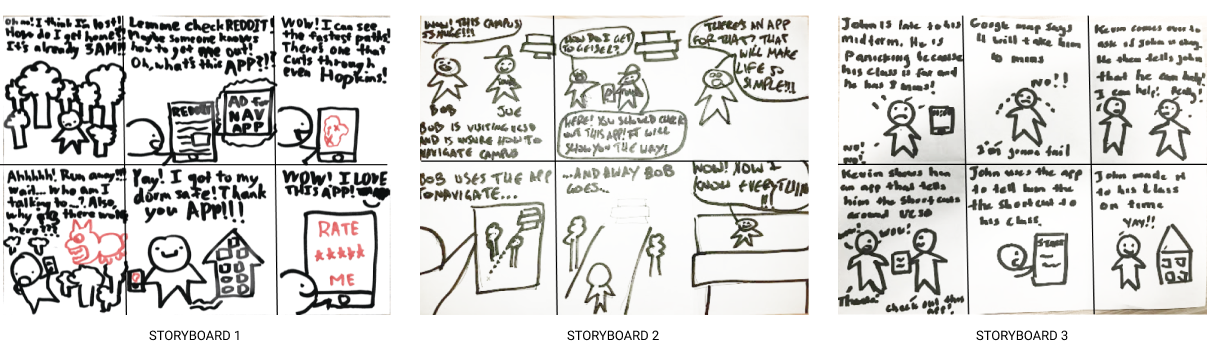 Ohm! I think I'm lost!
How do I get home?!
It's already 3AM!!!
Lemme check REDDIT!
Maybe someone knows
how to get me out!
Oh, what's this APP?!?!
REDDIT
AD for
NAV
APP
WOW! I can see
the fastest paths!
There's one that
cuts through
even Hopkins!
Ahhhhh! Run away!!!
wait... who am I
talking to..? Also,
why are there
here?!?
Yay! I got to my
dorm safe! Thank
you APP!!!
WOW! I LOVE
THIS APP!
RATE
★★★★★
ME
STORYBOARD 1
WOW! THIS CAMPUS
IS HUGE!!!
BOB
JOE
BOB IS VISITING UCSD
AND IS UNSURE HOW TO
NAVIGATE CAMPUS
HOW DO I GET
TO GEISEL?
HERE! YOU SHOULD CHECK
OUT THIS APP! IT WILL
SHOW YOU THE WAY!
THERE'S AN APP
FOR THAT? THAT
WILL MAKE
LIFE SO
SIMPLE!!!
BOB USES THE APP
TO NAVIGATE...
...AND AWAY BOB
GOES...
WOW! NOW I
KNOW EVERYTHING
!!!
STORYBOARD 2
John is late to his
midterm. He is
Panicking because
his class is far and
he has 5 mins!
No!
No!
Google map says
it will take him
10 mins
NO!!
I'm gonna fail
Kevin comes over to
ask if John is okay.
He then tells john
that he can help!
I can help!
Really!
Kevin shows him
an app that tells
him the shortcuts
around UCSD
wow!
wow!
There's
check out this
app!
John uses the app
to tell him the
the shortcut to
his class.
START
John made it
to his class
on time
YAY!!
STORYBOARD 3